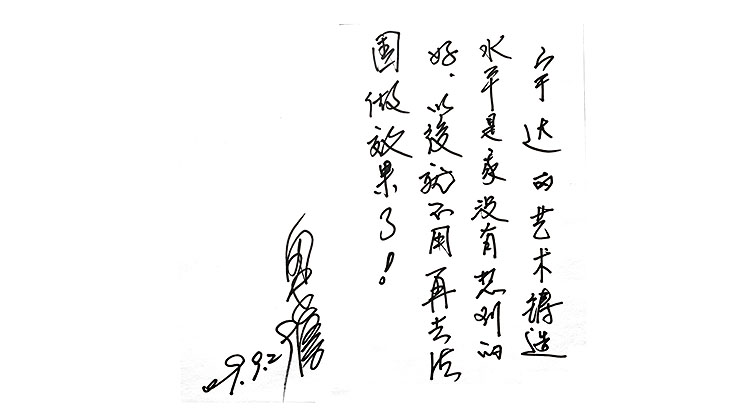 宇达的艺术铸造
水平是我没有想到的
好.以後就不用再去法
国做效果了!
09.9.2